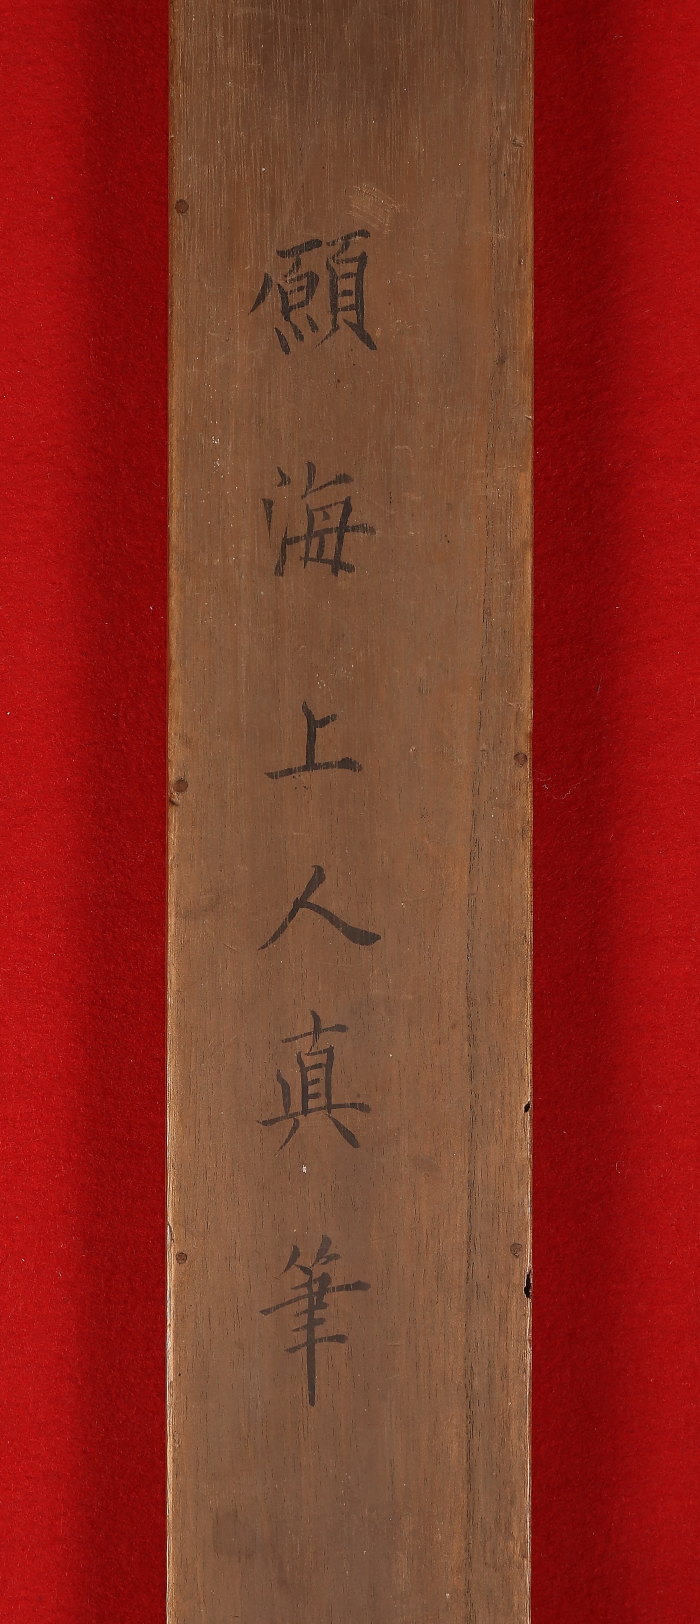 願海上人真筆